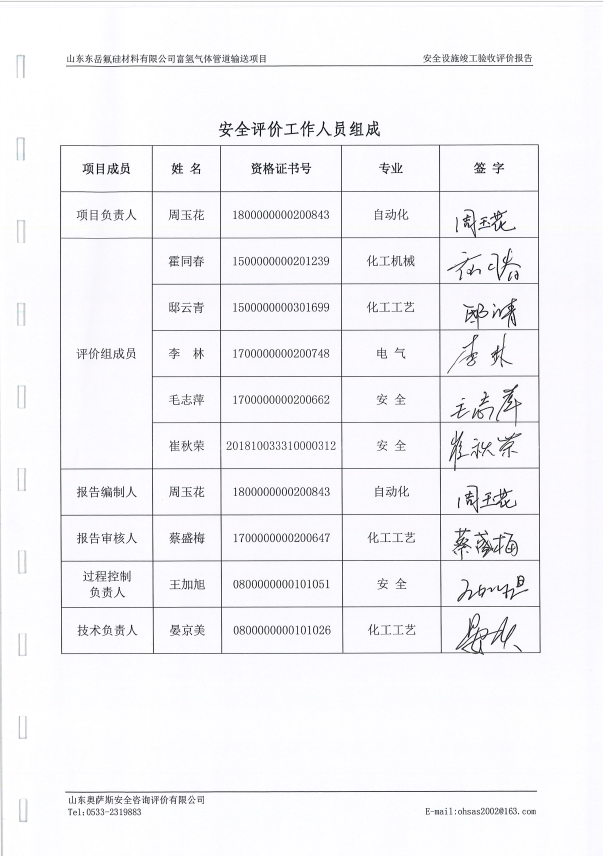 山东东岳氟硅材料有限公司富氢气体管道输送项目 安全设施竣工验收评价报告
安全评价工作人员组成
项目成员 姓 名 资格证书号 专业 签 字
项目负责人 周玉花 1800000000200843 自动化 周玉花
评价组成员 霍同春 1500000000201239 化工机械
邸云青 1500000000301699 化工工艺
李 林 1700000000200748 电 气 李林
毛志萍 1700000000200662 安 全 毛志萍
崔秋荣 201810033310000312 安 全 崔秋荣
报告编制人 周玉花 1800000000200843 自动化 周玉花
报告审核人 蔡盛梅 1700000000200647 化工工艺 蔡盛梅
过程控制
负责人 王加旭 0800000000101051 安 全
技术负责人 晏京美 0800000000101026 化工工艺
山东奥萨斯安全咨询评价有限公司
Tel:0533-2319883 E-mail:ohsas2002@163.com